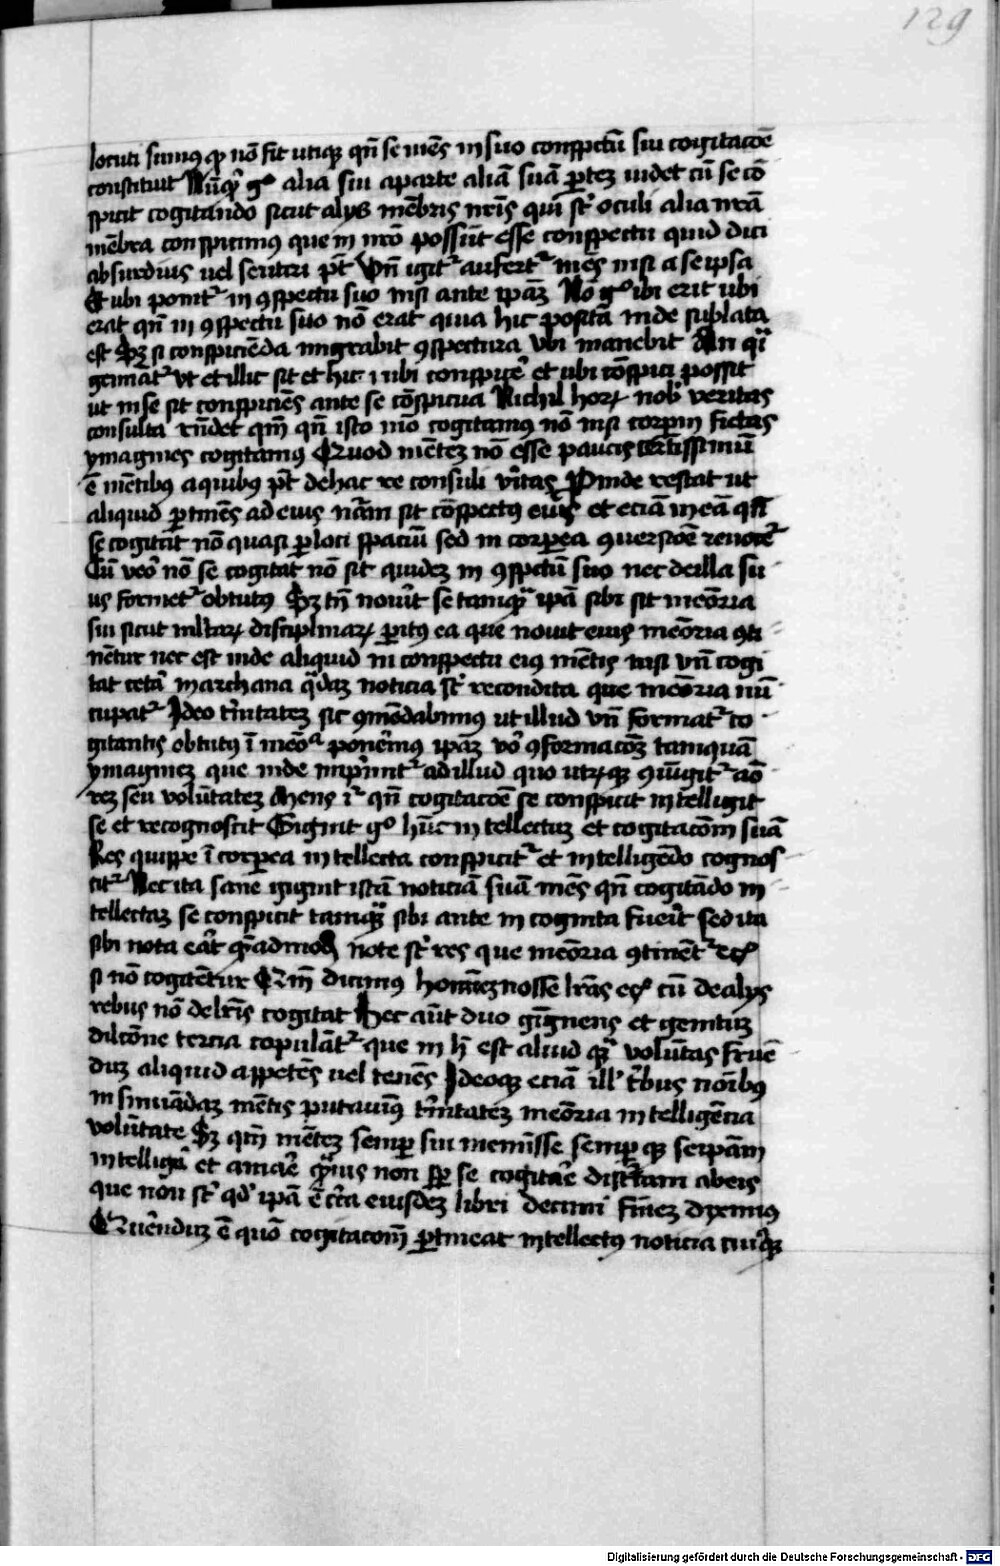 129
locuti sumus qͥ nō fit utiqꝫ qn̄ se mēs in suo conspectu sui cogitacōe
constituit Nūqͥd gͦ alia sui aparte aliā suā ꝑtez uidet cū se cō
spicit cogitando sicut alijs mēbris nrīs qui st̄ oculi alia nrā
mēbra conspicimus que in nrō possūt esse conspectu quid dici
absurdius uel sentiri pt̄ Vn̄ igit᷑ aufert᷑ mēs nisi a seipsa
Et ubi ponit᷑ in ꝯspectu suo nisi ante ipāꝫ Nō gͦ ibi erit ubi
erat qn̄ in ꝯspectu suo nō erat quia hic posita inde sublata
est Sꝫ si conspicienda migrabit ꝯspectura vbi manebit An qͣi
geminat᷑ vt et illic sit et hic i ubi conspicͥe et ubi cōspici possit
ut in se sit conspiciēs ante se cōspicua Nichil hoꝝ nobͥ veritas
consulta rn̄det qm̄ qn̄ isto mō cogitamus nō nisi corpꝝ fictas
ymagines cogitamus Quod mētez nō esse paucis certissimū
ē mētibus aquibus pt̄ dehac re consuli vītas Proinde restat ut
aliquid ꝑtinēs ad eius nāꝫ sit cōspectus eius et eciā in eā qn̄
se cogitat nō quasi ꝑ loci spaciū sed in corpea ꝯuersiōe reuocet᷑
Cū vͦo nō se cogitat nō sit quidez in ꝯspctū suo nec deilla su
us formet᷑ obtutus Sꝫ tn̄ nouit se tamqͣ ipā sibi sit meōria
sui sicut mltaꝝ disciplinaꝝ ꝑitus ea que nouit eius meōria ꝯti
nētur nec est inde aliquid in conspectu eius mētis nisi vn̄ cogi
tat cetā in archana qͣdaꝫ noticia st̄ recondita que meōria nū
cupat᷑ Ideo tͥnitatez sic ꝯmēdabimus ut illud vn̄ format᷑ co
gitantis obtutus ī meōͣ ponēmus ipāꝫ vͦo ꝯformacōꝫ tamquā
ymaginez que inde impͥmit᷑ ad illud quo utꝝqꝫ ꝯiūgit᷑ aō
rez seu volūtatez Mens iͬ qn̄ cogitacōe se conspicit intelligit
se et recognoscit Gignit gͦ hūc intellectuz et cogitacōm suā
Res quippe ī corpea intellecta conspicit᷑ et intelligēdo cognos
cit᷑ Nec ita sane gignit istā noticiā suā mēs qn̄ cogitādo in
tellectaꝫ se conspicit tamqͣꝫ sibi ante in cognita fuerͥt sed ita
sibi nota eāt qͤadmoꝺ note st̄ res que meōria ꝯtinet᷑ ecͥ
si nō cogitētur Qm̄ dicimus hominez nosse lrās ecͥ cū dealijs
rebus nō delrīs cogitat Hec aūt duo gignens et genituz
dilcōne tercia copulāt᷑ que in hͥ est aliud qͣꝫ volūtas fruē
duz aliquid appetēs uel tenēs Ideoqꝫ eciā illͥ tͥbus noībus
insinuādaꝫ mētis putauimus tͥnitatez meōria intelligēcia
volūtate Sꝫ qm̄ mētez semper sui meminisse sempqꝫ seipām
intelligͤ et amaͤ qͣuis non sꝑ se cogitaͤ discͤtam abeis
que nōn st̄ qd̓ ipā ē cͥca eiusdez libri decimi finez diximus
Querenduz ē quō cogitacoīm ꝑtineat intellectus noticia cuiͥqꝫ
Digitalisierung gefördert durch die Deutsche Forschungsgemeinschaft - DFG